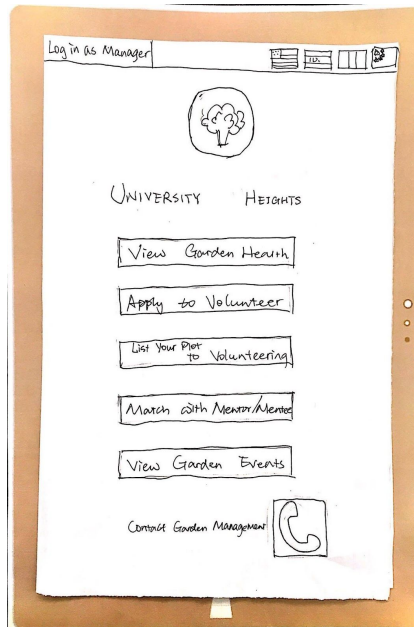 Log in as Manager
UNIVERSITY HEIGHTS
View Garden Health
Apply to Volunteer
List Your Plot
to Volunteering
Match with Mentor/Mentee
View Garden Events
Contact Garden Management